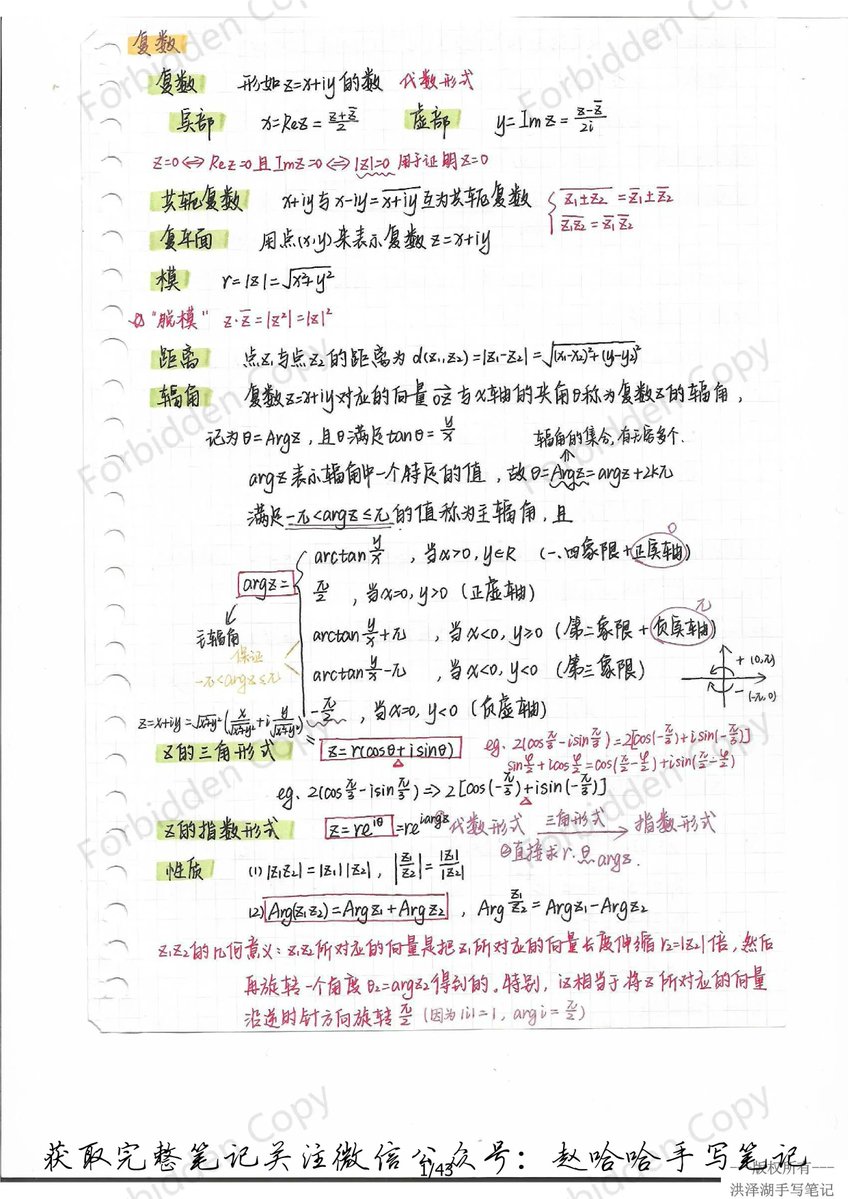 复数
复数 形如z=x+iy的数 代数形式
实部 x=Rez=\frac{z+\bar{z}}{2} 虚部 y=Imz=\frac{z-\bar{z}}{2i}
z=0⇔Rez=0且Imz=0⇔|z|=0 用于证明z=0
共轭复数 x+iy与x-iy=\overline{x+iy}互为共轭复数 { \overline{z₁±z₂}=\bar{z}₁±\bar{z}₂
\overline{z₁z₂}=\bar{z}₁\bar{z}₂
复平面 用点(x,y)来表示复数z=x+iy
模 r=|z|=\sqrt{x²+y²}
"脱模" z·\bar{z}=|z²|=|z|²
距离 点z₁与点z₂的距离为d(z₁,z₂)=|z₁-z₂|=\sqrt{(x₁-x₂)²+(y-y₂)²}
辐角 复数z=x+iy对应的向量\vec{oz}与x轴的夹角θ称为复数z的辐角,
记为θ=Argz,且θ满足tanθ=\frac{y}{x} 辐角的集合,有无穷多个.
argz表示辐角中一个特定的值,故θ=Argz=argz+2kπ
满足-π<argz≤π的值称为主辐角,且
arctan\frac{y}{x} ,当x>0,y∈R (一、四象限+正实轴) 0
argz= { \frac{π}{2} ,当x=0,y>0 (正虚轴)
主辐角 arctan\frac{y}{x}+π ,当x<0,y≥0 (第二象限+负实轴) π
保证 -π<argz≤π
arctan\frac{y}{x}-π ,当x<0,y<0 (第三象限) + (0,π)
- (-π,0)
-\frac{π}{2} ,当x=0,y<0 (负虚轴)
z=x+iy=\sqrt{x²+y²}(\frac{x}{\sqrt{x²+y²}}+i\frac{y}{\sqrt{x²+y²}})
z的三角形式 = z=r(cosθ+isinθ) eg. 2(cos\frac{π}{3}-isin\frac{π}{3})=2[cos(-\frac{π}{3})+isin(-\frac{π}{3})]
sin\frac{φ}{2}+icos\frac{φ}{2}=cos(\frac{π}{2}-\frac{φ}{2})+isin(\frac{π}{2}-\frac{φ}{2})
eg. 2(cos\frac{π}{3}-isin\frac{π}{3})⇒2[cos(-\frac{π}{3})+isin(-\frac{π}{3})]
z的指数形式 z=re^{iθ}=re^{iargz} 代数形式 三角形式→ 指数形式
②直接求r.θ argz.
性质 (1) |z₁z₂|=|z₁||z₂|, |\frac{z₁}{z₂}|=\frac{|z₁|}{|z₂|}
(2) Arg(z₁z₂)=Argz₁+Argz₂ , Arg\frac{z₁}{z₂}=Argz₁-Argz₂
z₁z₂的几何意义:z₁z₂所对应的向量是把z₁所对应的向量长度伸缩r₂=|z₂|倍,然后
再旋转一个角度θ₂=argz₂得到的。特别,iz相当于将z所对应的向量
沿逆时针方向旋转\frac{π}{2} (因为|i|=1, argi=\frac{π}{2})
获取完整笔记关注微信公众号:赵哈哈手写笔记
1/43
版权所有
洪泽湖手写笔记
Forbidden Copy
Forbidden Copy
Forbidden Copy
Forbidden Copy
Forbidden Copy
Forbidden Copy
Forbidden Copy
Forbidden Copy